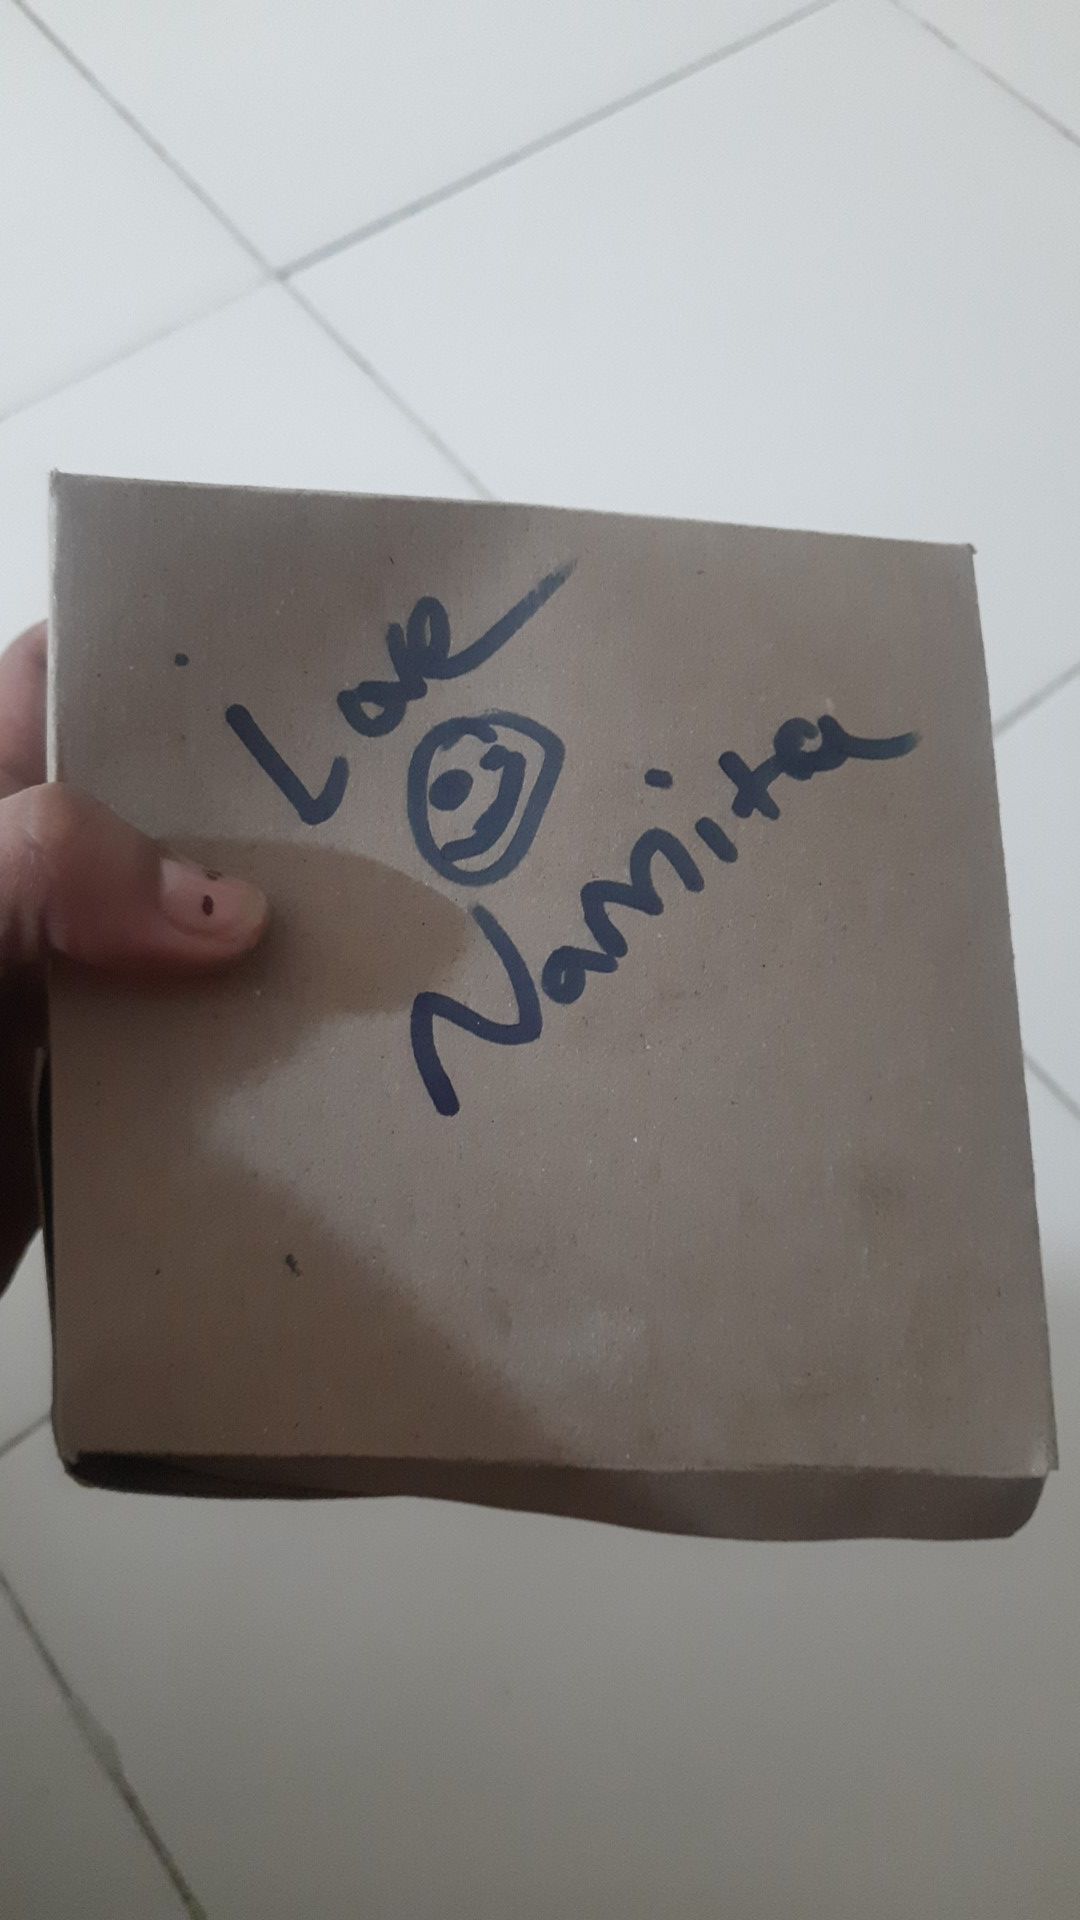 Love
Namita